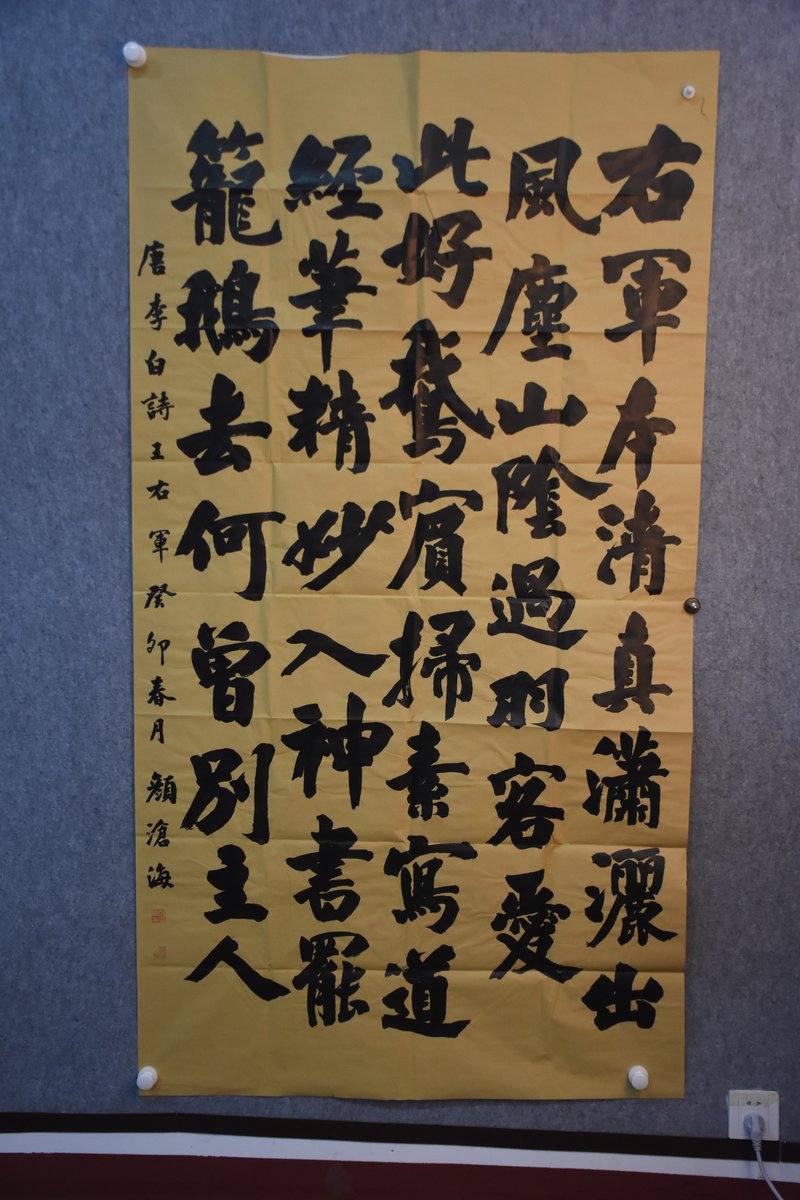 右軍本清真瀟灑出
風塵山陰過羽客愛
此好鵞賓掃素寫道
經筆精妙入神書罷
籠鵝去何曾別主人
唐李白詩王右軍癸卯春月顏滄海